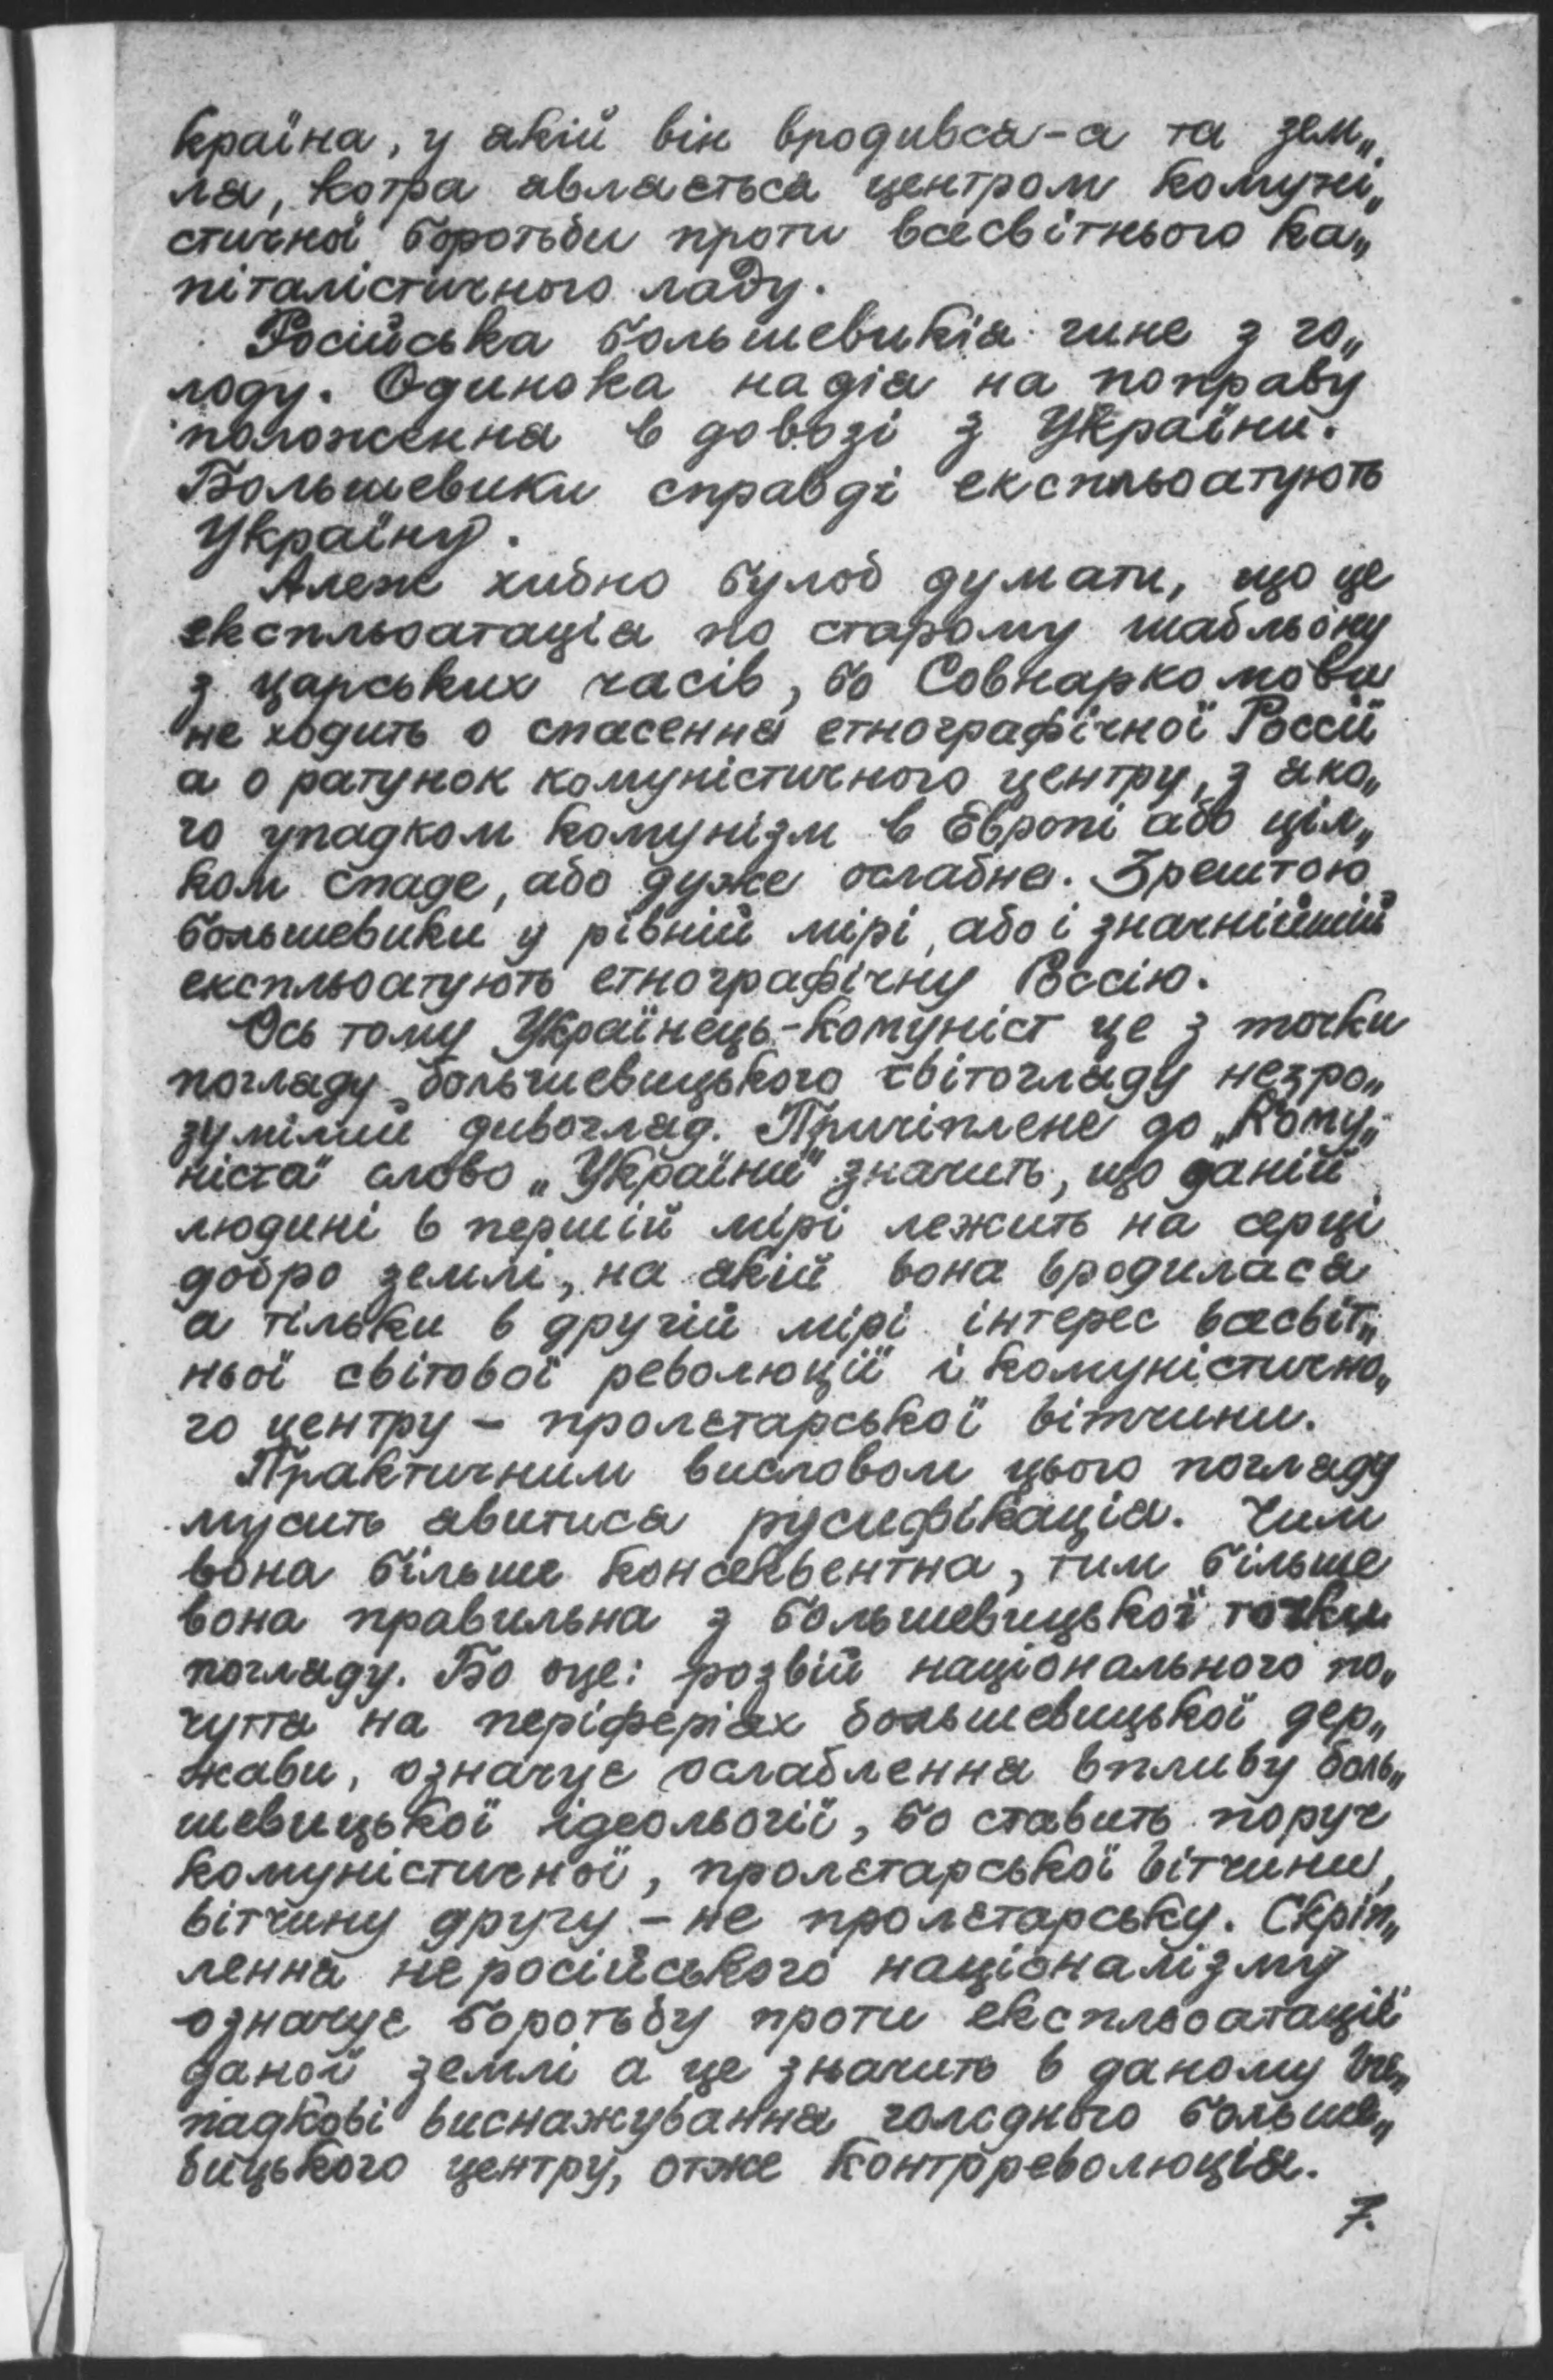 країна, у якій він вродився-а та зем„
ля, котра являється центром комуні„
стичної боротьби проти всесвітнього ка„
піталістичного ладу.
Російська большевикія гине з го„
лоду. Одинока надія на поправу
положення в довозі з України.
Большевики справді експльоатують
Україну.
Алеж хибно булоб думати, що це
експльоатація по старому шабльону
з царських часів, бо Совнаркомови
не ходить о спасення етнографічної Россії
а о ратунок комуністичного центру, з яко„
го упадком комунізм в Европі або ціл„
ком спаде, або дуже ослабне. Зрештою
большевики у рівній мірі, або і значнійшій
експльоатують етнографічну Россію.
Ось тому Українець-комуніст це з точки
погляду большевицького світогляду незро„
зумілий дивогляд. Причіплене до „Кому„
ніста" слово „Україний" значить, що даній
людині в першій мірі лежить на серці
добро землі, на якій вона вродилася
а тільки в другій мірі інтерес всесвіт„
ньої світової революції і комуністично„
го центру – пролєтарської вітчини.
Практичним висловом цього погляду
мусить явитися русифікація. Чим
вона більше консеквентна, тим більше
вона правильна з большевицької точки
погляду. Бо оце: розвій національного по„
чуття на періферіях большевицької дер„
жави, означує ослаблення впливу боль„
шевицької ідеольогії, бо ставить поруч
комуністичної, пролєтарської вітчини,
вітчину другу – не пролєтарську. Скріп„
лення неросійського націоналізму
означує боротьбу проти експльоатації
даної землі а це значить в даному ви„
падкові виснажування голодного больше„
вицького центру, отже контрреволюція.
7.